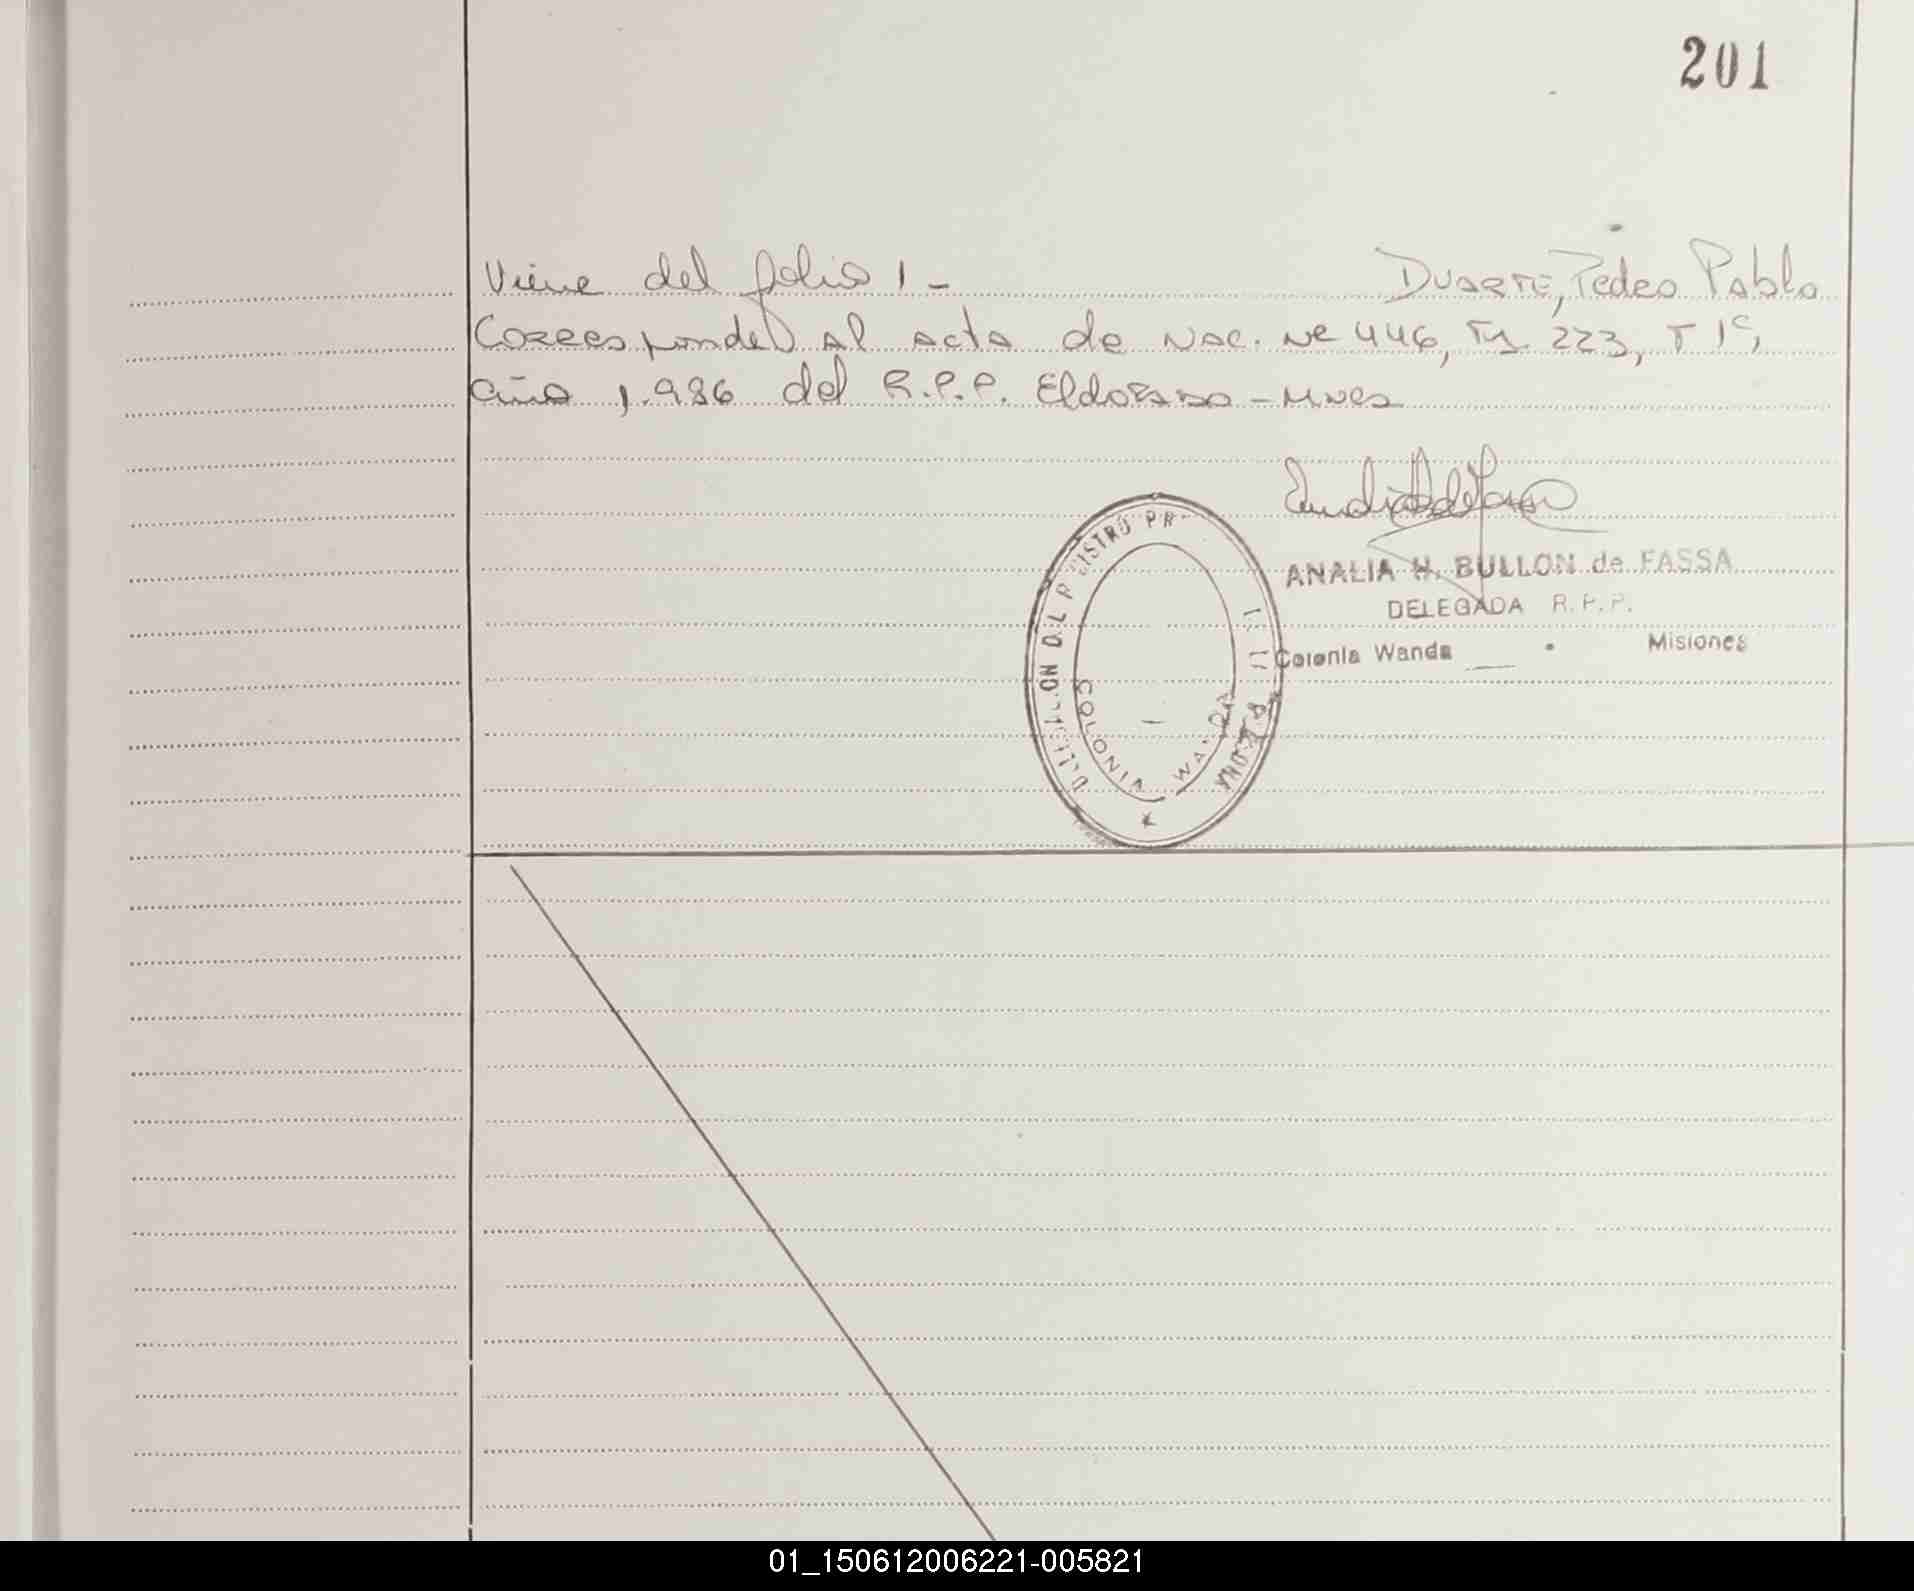 201
Viene del folio 1 - Duarte, Pedro Pablo
Corresponde al acta de Nac. Nº 446, Fº 223, T 1º,
año 1.986 del R.P.P. Eldorado - Mnes
ANALIA H. BULLON de FASSA
DELEGADA R.P.P.
Colonia Wanda Misiones
COLONIA WANDA
01_150612006221-005821